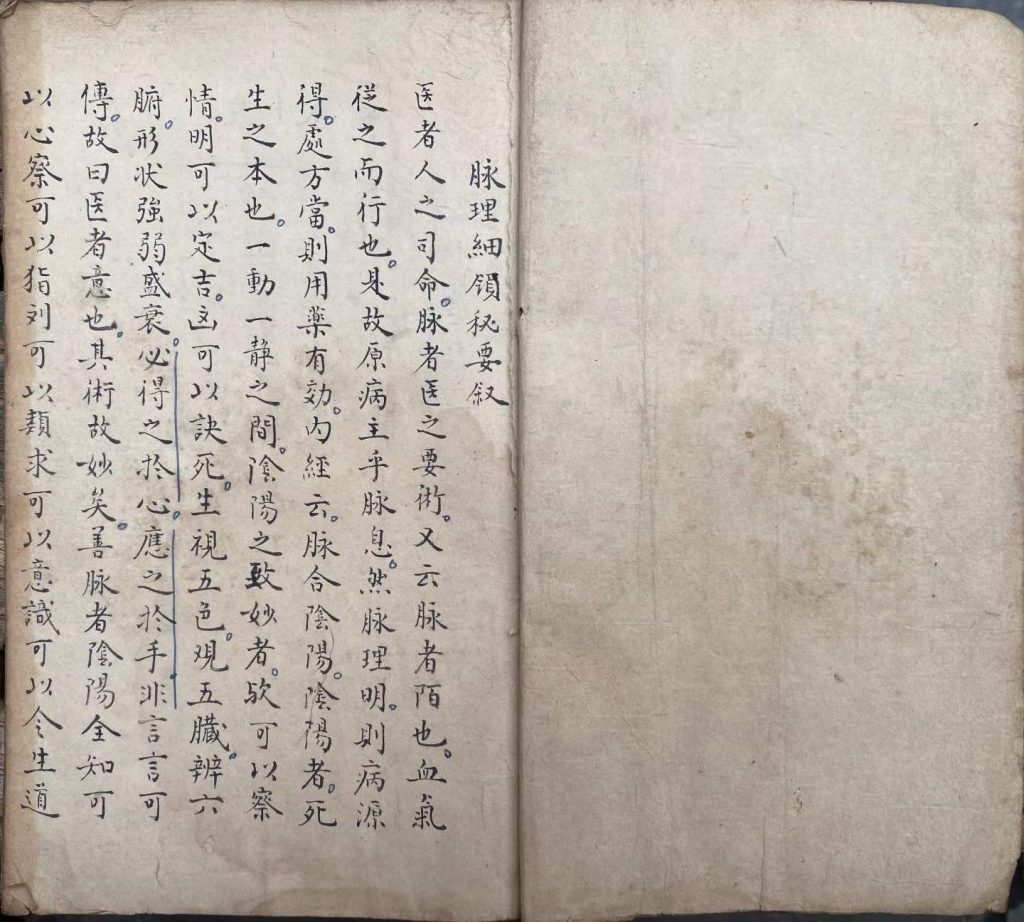 脉理細領秘要叙
医者人之司命。脉者医之要術。又云脉者陌也。血氣
從之而行也。是故原病主乎脉息。然脉理明。則病源
得。處方當。則用薬有効。内經云。脉合陰陽。陰陽者。死
生之本也。一動一静之間。陰陽之致妙者。欤可以察
情。明可以定吉。凶可以訣死。生視五色。观五臟。辨六
腑。形状強弱盛衰。必得之於心。應之於手非言言可
傳。故曰医者意也。其術故妙矣。善脉者陰陽全知可
以心察可以指列可以類求可以意識可以令生道